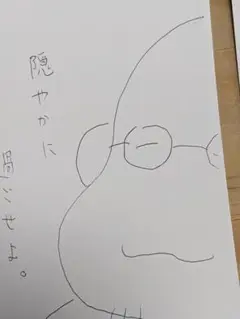 隠やかに
過ごせよ。